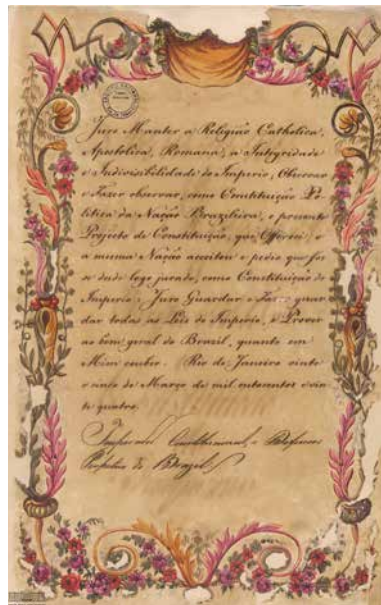 Juro Manter a Religião Catholica,
Apostolica, Romana, a Integridade
e Indivisibilidade do Imperio; Observar
e Fazer observar, como Constituição Po-
litica da Nação Brazileira, o presente
Projecto de Constituição, que Offereci, e
a mesma Nação aceitou e pedio que fos-
se desde logo jurado, como Constituição do
Imperio: Juro Guardar e Fazer guar
dar todas as Leis do Imperio, e Prover
ao bem geral do Brazil, quanto em
Mim couber. Rio de Janeiro vinte
e cinco de Março de mil oitocentos e vin
te quatro.
Imperador Constitucional, e Defensor
Perpetuo do Brazil